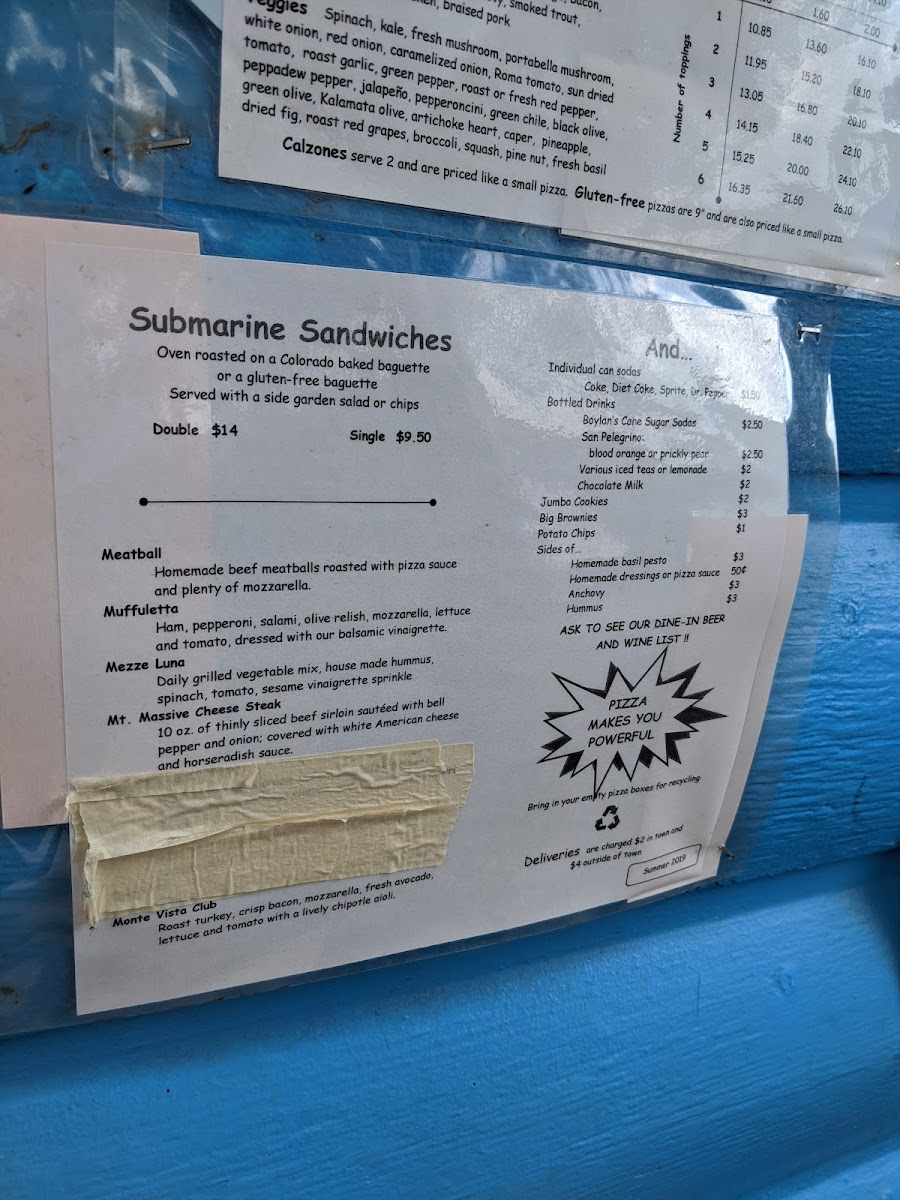 bacon,
smoked trout,
braised pork
Veggies Spinach, kale, fresh mushroom, portabella mushroom,
white onion, red onion, caramelized onion, Roma tomato, sun dried
tomato, roast garlic, green pepper, roast or fresh red pepper,
peppadew pepper, jalapeño, pepperoncini, green chile, black olive,
green olive, Kalamata olive, artichoke heart, caper, pineapple,
dried fig, roast red grapes, broccoli, squash, pine nut, fresh basil
Calzones serve 2 and are priced like a small pizza. Gluten-free pizzas are 9" and are also priced like a small pizza.
Number of toppings
1.60 2.00
1 10.85 13.60 16.10
2 11.95 15.20 18.10
3 13.05 16.80 20.10
4 14.15 18.40 22.10
5 15.25 20.00 24.10
6 16.35 21.60 26.10
Submarine Sandwiches
Oven roasted on a Colorado baked baguette
or a gluten-free baguette
Served with a side garden salad or chips
Double $14 Single $9.50
Meatball
Homemade beef meatballs roasted with pizza sauce
and plenty of mozzarella.
Muffuletta
Ham, pepperoni, salami, olive relish, mozzarella, lettuce
and tomato, dressed with our balsamic vinaigrette.
Mezze Luna
Daily grilled vegetable mix, house made hummus,
spinach, tomato, sesame vinaigrette sprinkle
Mt. Massive Cheese Steak
10 oz. of thinly sliced beef sirloin sautéed with bell
pepper and onion; covered with white American cheese
and horseradish sauce.
Monte Vista Club
Roast turkey, crisp bacon, mozzarella, fresh avocado,
lettuce and tomato with a lively chipotle aioli.
And...
Individual can sodas
Coke, Diet Coke, Sprite, Dr. Pepper $1.50
Bottled Drinks
Boylan's Cane Sugar Sodas $2.50
San Pelegrino:
blood orange or prickly pear $2.50
Various iced teas or lemonade $2
Chocolate Milk $2
Jumbo Cookies $2
Big Brownies $3
Potato Chips $1
Sides of...
Homemade basil pesto $3
Homemade dressings or pizza sauce 50¢
Anchovy $3
Hummus $3
ASK TO SEE OUR DINE-IN BEER
AND WINE LIST !!
PIZZA
MAKES YOU
POWERFUL
Bring in your empty pizza boxes for recycling
Deliveries are charged $2 in town and
$4 outside of town
Summer 2019